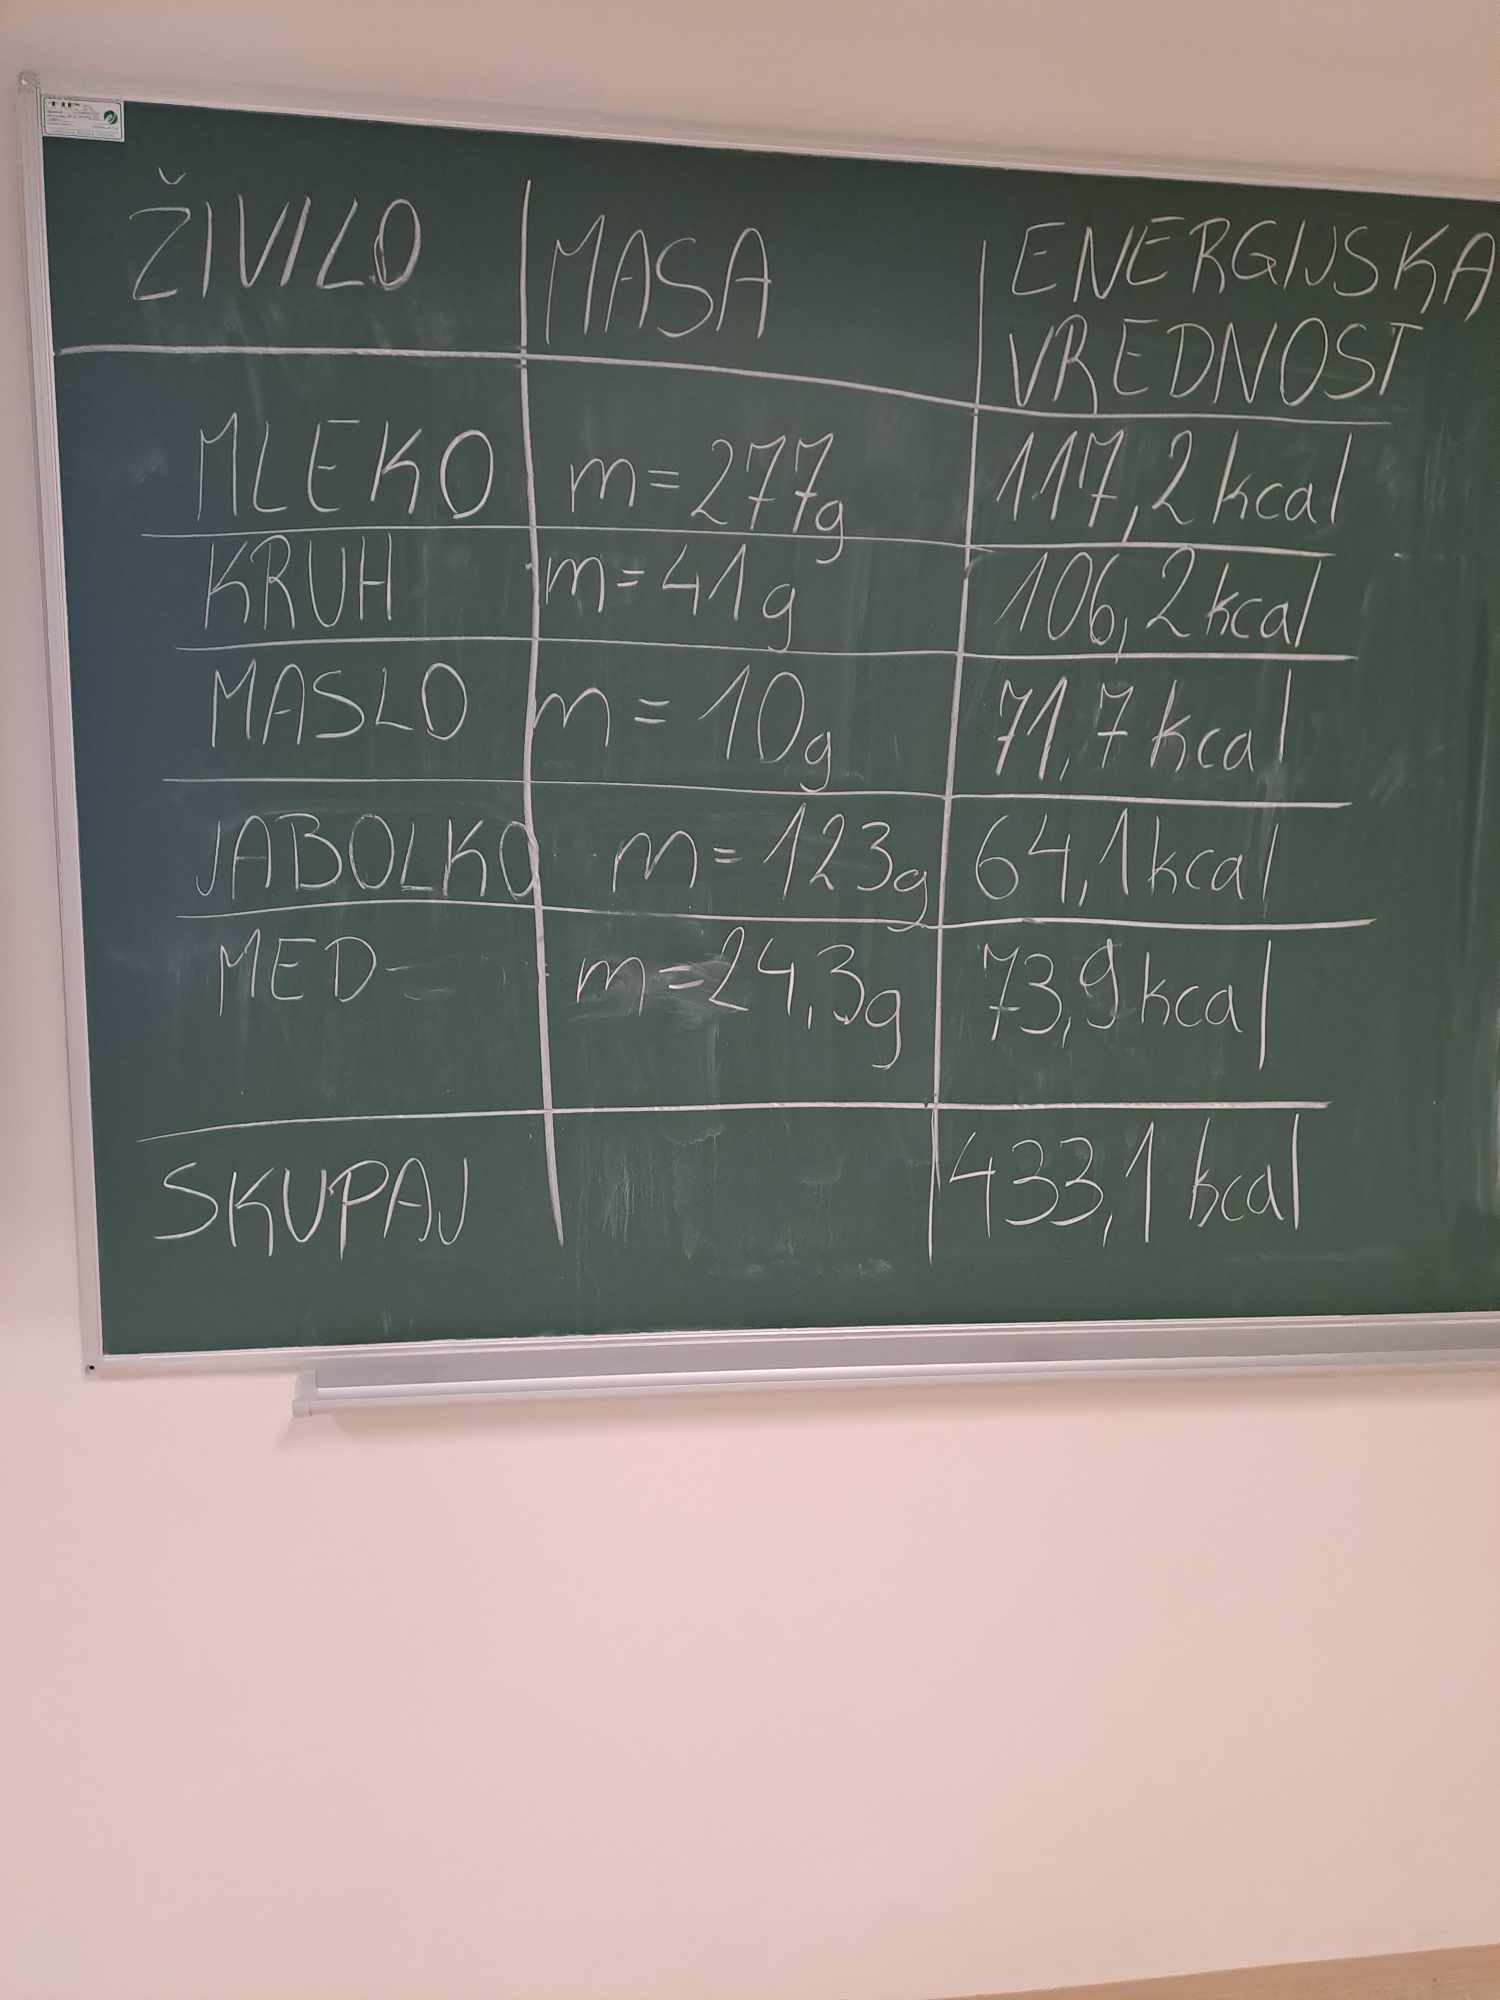 ŽIVILO MASA ENERGIJSKA
VREDNOST
MLEKO m=277g 117,2kcal
KRUH m=41g 106,2kcal
MASLO m=10g 71,7kcal
JABOLKO m=123g 64,1kcal
MED m=24,3g 73,9kcal
SKUPAJ 433,1 kcal